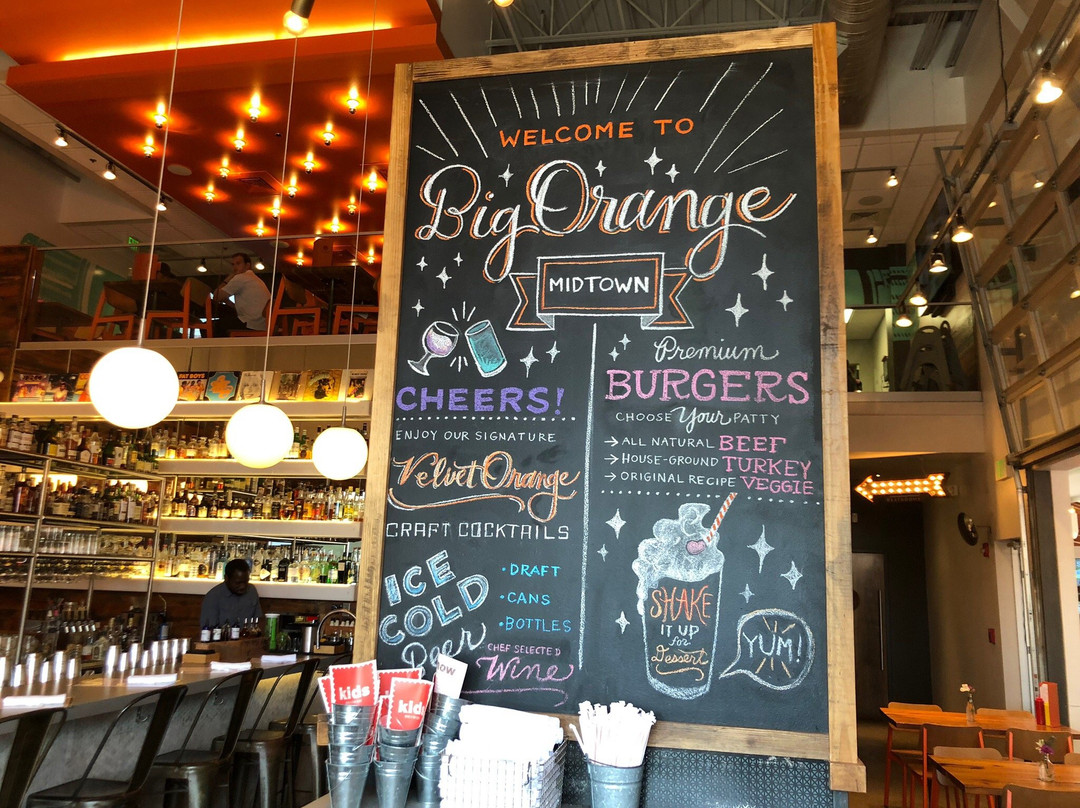 WELCOME TO
Big Orange
MIDTOWN
CHEERS!
ENJOY OUR SIGNATURE
Velvet Orange
CRAFT COCKTAILS
ICE
COLD
Beer
• DRAFT
• CANS
• BOTTLES
CHEF SELECTED
Wine
Premium
BURGERS
CHOOSE Your PATTY
→ ALL NATURAL BEEF
→ HOUSE-GROUND TURKEY
→ ORIGINAL RECIPE VEGGIE
SHAKE
IT UP
for
Dessert
YUM!
kids
kids